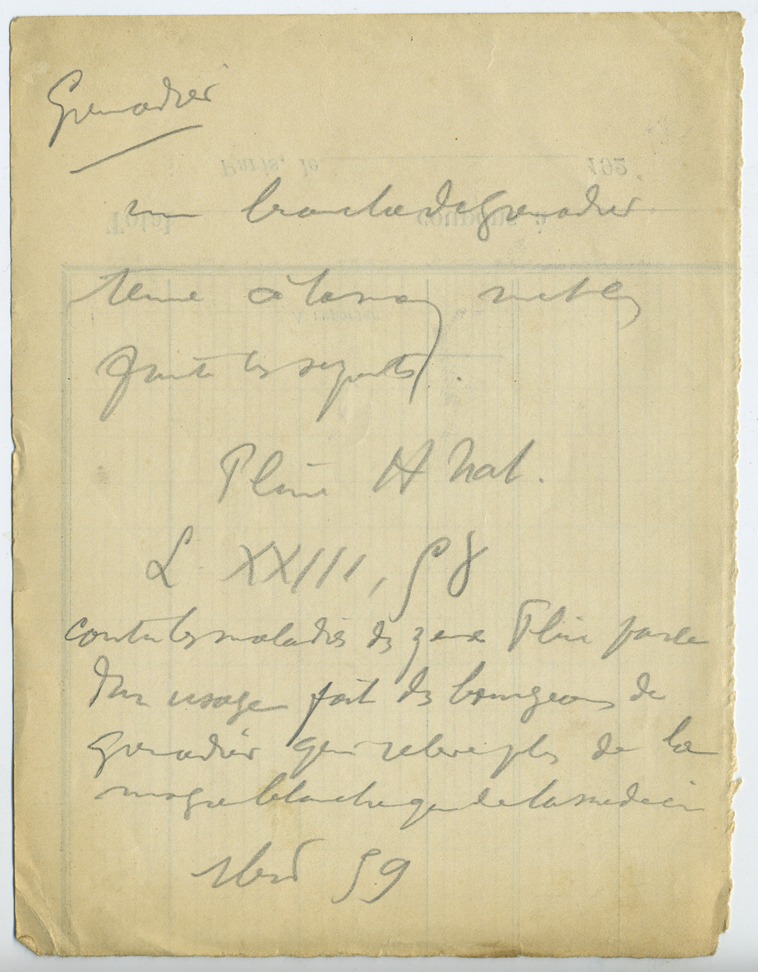 Grenadier
une branche de grenadier
tenue à la main met en
fuite les serpents.
Pline H Nat.
L XXIII, 58
contre les maladies des yeux Pline parle
d'un usage fait des bourgeons de
grenadier qui relève plus de la
magie blanche que de la médecine
ibid 59
Paris, le 192